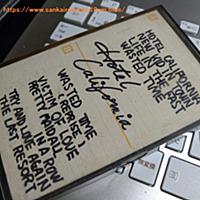 HOTEL CALIFORNIA
NEW KID IN TOWN
LIFE IN THE FAST
LANE
WASTED TIME
Hotel
California
WASTED TIME
(REPRISE)
VICTIM OF LOVE
PRETTY MAIDS ALL
IN A ROW
TRY AND LOVE AGAIN
THE LAST RESORT